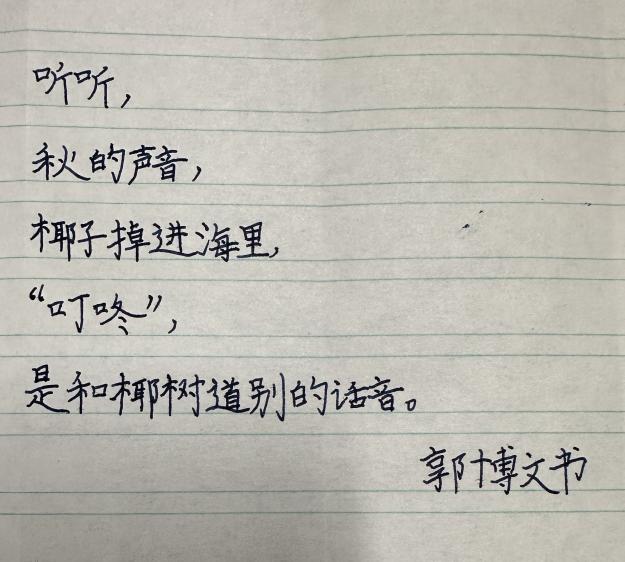 听听，
秋的声音，
椰子掉进海里，
“叮咚”，
是和椰树道别的话音。
郭博文书